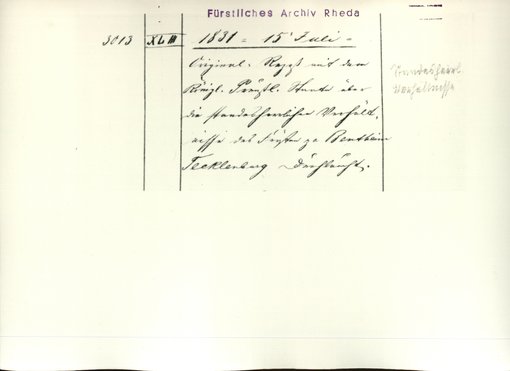 Fürstliches Archiv Rheda
3013 XLIII 1831 - 15 Juli -
Original-Rezeß mit dem
Königl. Preußl. Staate über
die standesherrlichen Verhält-
nisse des Fürsten zu Bentheim
Tecklenburg Durchlaucht.
Standesherrl.
Verhältnisse